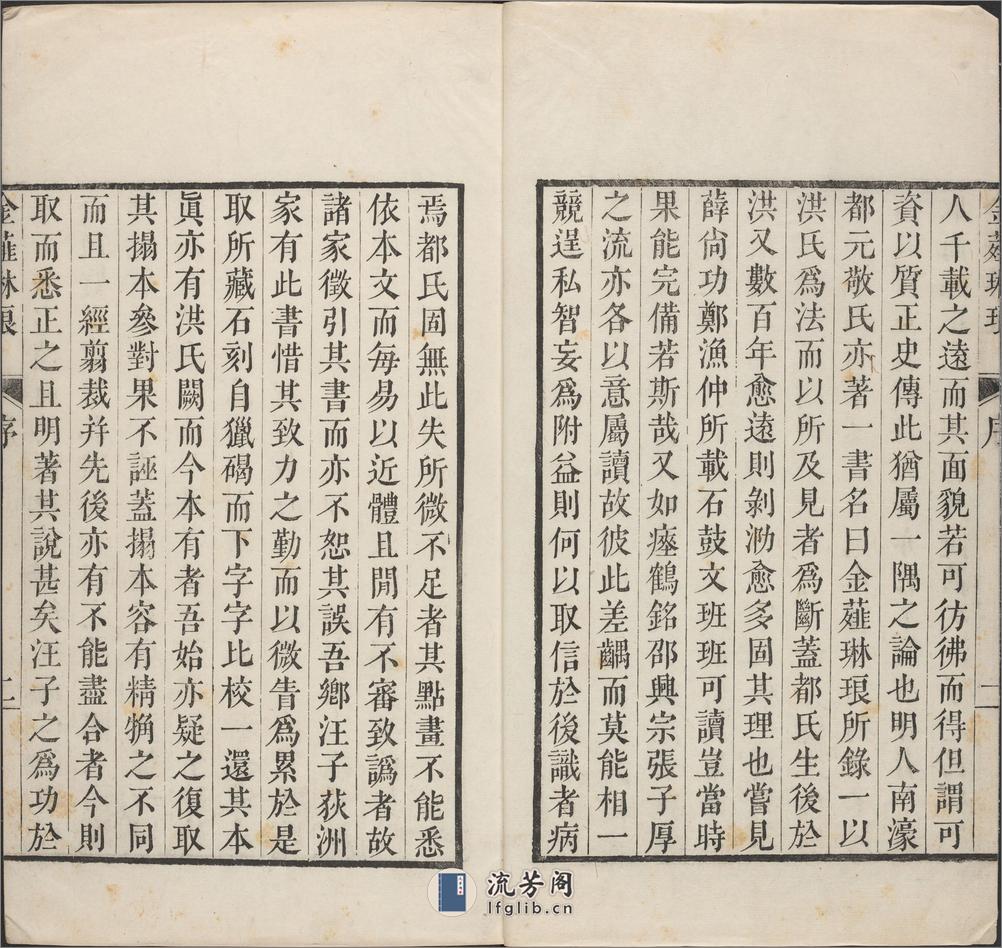 金薤琳琅 序 二
人千載之遠而其面貌若可彷彿而得但謂可
資以質正史傳此猶屬一隅之論也明人南濠
都元敬氏亦著一書名曰金薤琳琅所錄一以
洪氏爲法而以所及見者爲斷蓋都氏生後於
洪又數百年愈遠則剝泐愈多固其理也嘗見
薛尙功鄭漁仲所載石鼓文班班可讀豈當時
果能完備若斯哉又如瘞鶴銘邵興宗張子厚
之流亦各以意屬讀故彼此差齵而莫能相一
競逞私智妄爲附益則何以取信於後識者病
焉都氏固無此失所微不足者其點畫不能悉
依本文而每易以近體且閒有不審致譌者故
諸家徵引其書而亦不恕其誤吾鄉汪子荻洲
家有此書惜其致力之勤而以微眚爲累於是
取所藏石刻自獵碣而下字字比校一還其本
眞亦有洪氏闕而今本有者吾始亦疑之復取
其搨本參對果不誣蓋搨本容有精觕之不同
而且一經翦裁并先後亦有不能盡合者今則
取而悉正之且明著其說甚矣汪子之爲功於
金薤琳琅 序 二
流芳阁
lfglib.cn